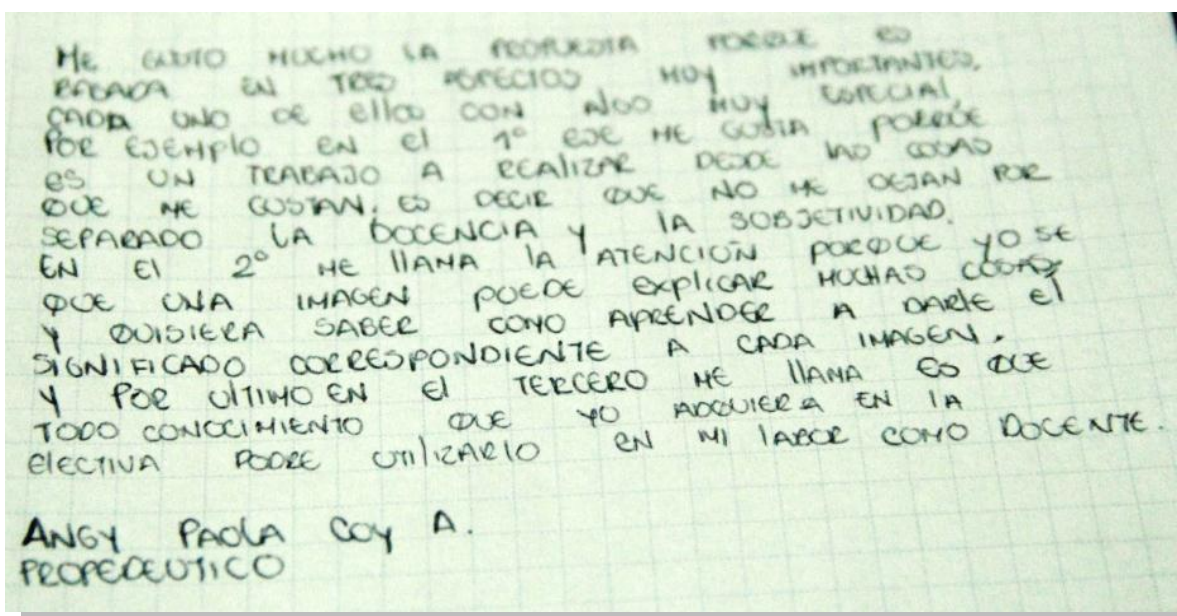 ME GUSTO MUCHO LA PROPUESTA PORQUE ES
BASADA EN TRES ASPECTOS MUY IMPORTANTES,
CADA UNO DE ELLOS CON ALGO MUY ESPECIAL,
POR EJEMPLO EN EL 1° EJE ME GUSTA PORQUE
ES UN TRABAJO A REALIZAR DESDE LAS COSAS
QUE ME GUSTAN. ES DECIR QUE NO ME DEJAN POR
SEPARADO LA DOCENCIA Y LA SUBJETIVIDAD.
EN El 2° ME llAMA lA ATENCIÓN PORQUE YO SE
QUE UNA IMAGEN PUEDE EXPLICAR MUCHAS COSAS,
Y QUISIERA SABER COMO APRENDER A DARLE El
SIGNIFICADO CORRESPONDIENTE A CADA IMAGEN.
Y POR ULTIMO EN El TERCERO ME llAMA ES QUE
TODO CONOCIMIENTO QUE YO ADQUIERA EN lA
ElECTIVA PODRE UTILIZARLO EN MI LABOR COMO DOCENTE.
ANGY PAOLA COY A.
PROPEDEUTICO